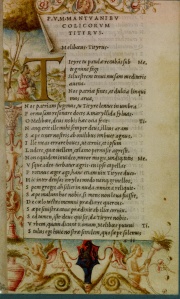 P. V. M. MANTVANI BV
COLICORVM
TITYRVS.
Melibœus. Tityrus.
Tityre tu patulæ recubans sub Me.
tegmine fagi
Syluestrem tenui musam meditaris
auena,
Nos patriæ fines, et dulcia linqui
mus arua,
N os patriam fugimus, tu Tityre lentus in umbra
F ormosam resonare doces Amaryllida syluas.
O Melibœe, deus nobis hæc otia fecit. Ti.
N anque erit ille mihi semper deus, illius aram
S æpe tener nostris ab ouilibus imbuet agnus.
I lle meas errare boues, ut cernis, et ipsum
L udere, quæ uellem, calamo permisit agresti.
N on equidem inuideo, miror magis, undique totis Me.
V sque adeo turbatur agris. en ipse capellas
P rotinus æger ago, hanc etiam uix Tityre duco.
H ic inter densas corylos modo nanque gemellos,
S pem gregis ah silice in nuda connixa reliquit.
S æpe malum hoc nobis, si mens non læua fuisset,
D e cœlo tactas memini prædicere quercus.
S æpe sinistra caua prædixit ab ilice cornix.
S ed tamen, iste deus qui sit, da Tityre nobis.
V rbem, quam dicunt Romam, Melibœe putaui Ti.
S tultus ego huic nostræ similem, quo sæpe solemus